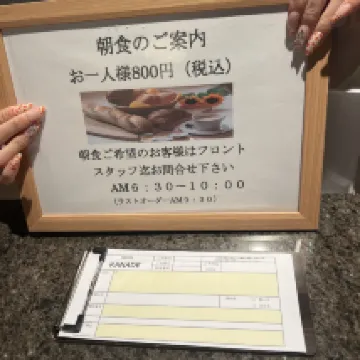 朝食のご案内
お一人様800円（税込）
朝食ご希望のお客様はフロント
スタッフ迄お問合せ下さい
AM6：30～10：00
（ラストオーダーAM9：30）
KANADE